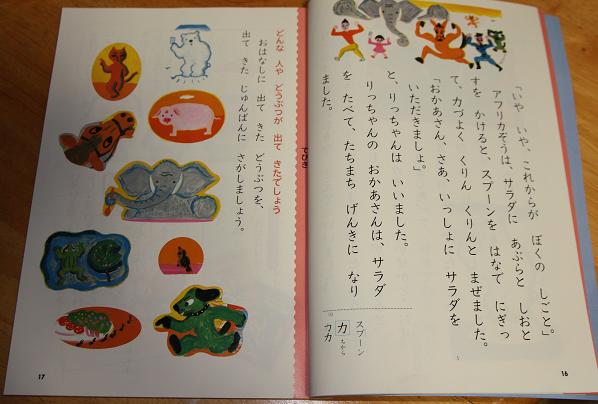 「いや いや、これからが ぼくの しごと。」
アフリカぞうは、サラダに あぶらと しおと
すを かけると、スプーンを はなで にぎっ
て、力づよく くりん くりんと まぜました。
「おかあさん、さあ、いっしょに サラダを
いただきましょ。」
と、りっちゃんは いいました。
りっちゃんの おかあさんは、サラダ
を たべて、たちまち げんきに なり
ました。
スプーン
力
ちから
カカ
16
てびき
どんな 人や どうぶつが 出て きたでしょう
おはなしに 出て きた どうぶつを、
出て きた じゅんばんに さがしましょう。
17